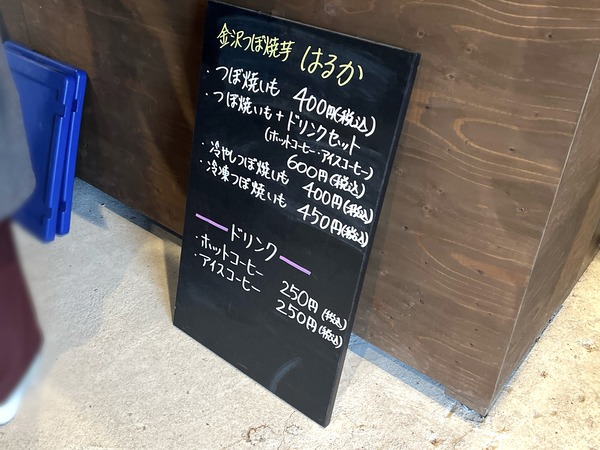 金沢つぼ焼芋 はるか
・つぼ焼いも 400円(税込)
・つぼ焼いも+ドリンクセット
(ホットコーヒー・アイスコーヒー)
600円(税込)
・冷やしつぼ焼いも 400円(税込)
・冷凍つぼ焼いも 450円(税込)
ドリンク
・ホットコーヒー 250円(税込)
・アイスコーヒー 250円(税込)